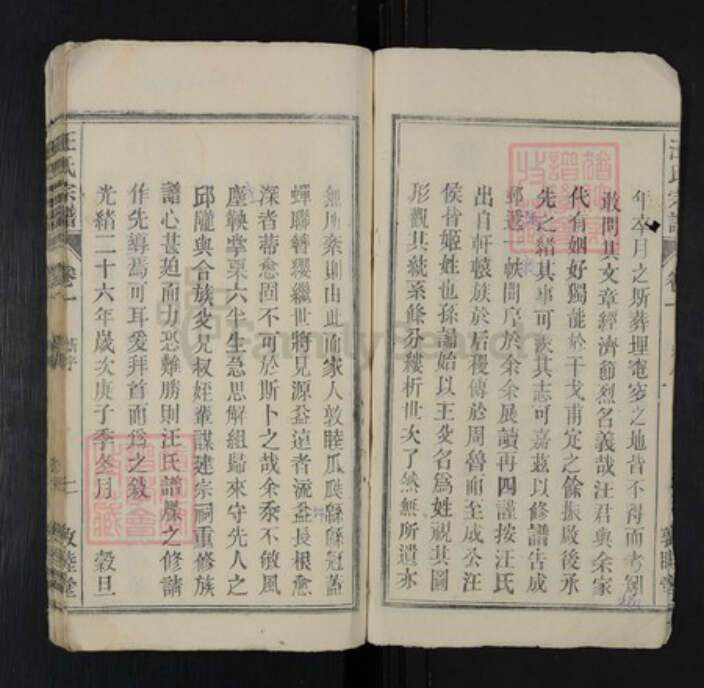 年卒月之所葬埋窀穸之地皆不得而考矧
敢問其文章經濟節烈名義哉汪君與余家
代有姻好獨能於干戈甫定之餘振厥後承
先之緒其事可　其志可嘉茲以修譜告成
郵遞　帙問序於余余展讀再四謹按汪氏
出自軒轅族於后稷傳於周魯而至成公汪
侯昔姬姓也孫誦始以王父名為姓視其圖
形觀其統系條分縷析世次了然無所遺亦
無所紊則由此而家人敦睦瓜瓞綿綿冠蓋
蟬聯簪纓繼世將見源益遠者流益長根愈
深者蒂愈固不可於斯卜之哉余忝不敏風
塵鞅掌栗六半生急思解組歸來守先人之
邱隴與合族父兄叔姪輩謀建宗祠重修族
譜心甚廹而力恐難勝則汪氏譜牒之修請
作先導焉可耳爰拜首而為之敘
光緒二十六年歲次庚子季冬月　穀旦
汪氏宗譜
卷一
七
敦睦堂
FamilySearch